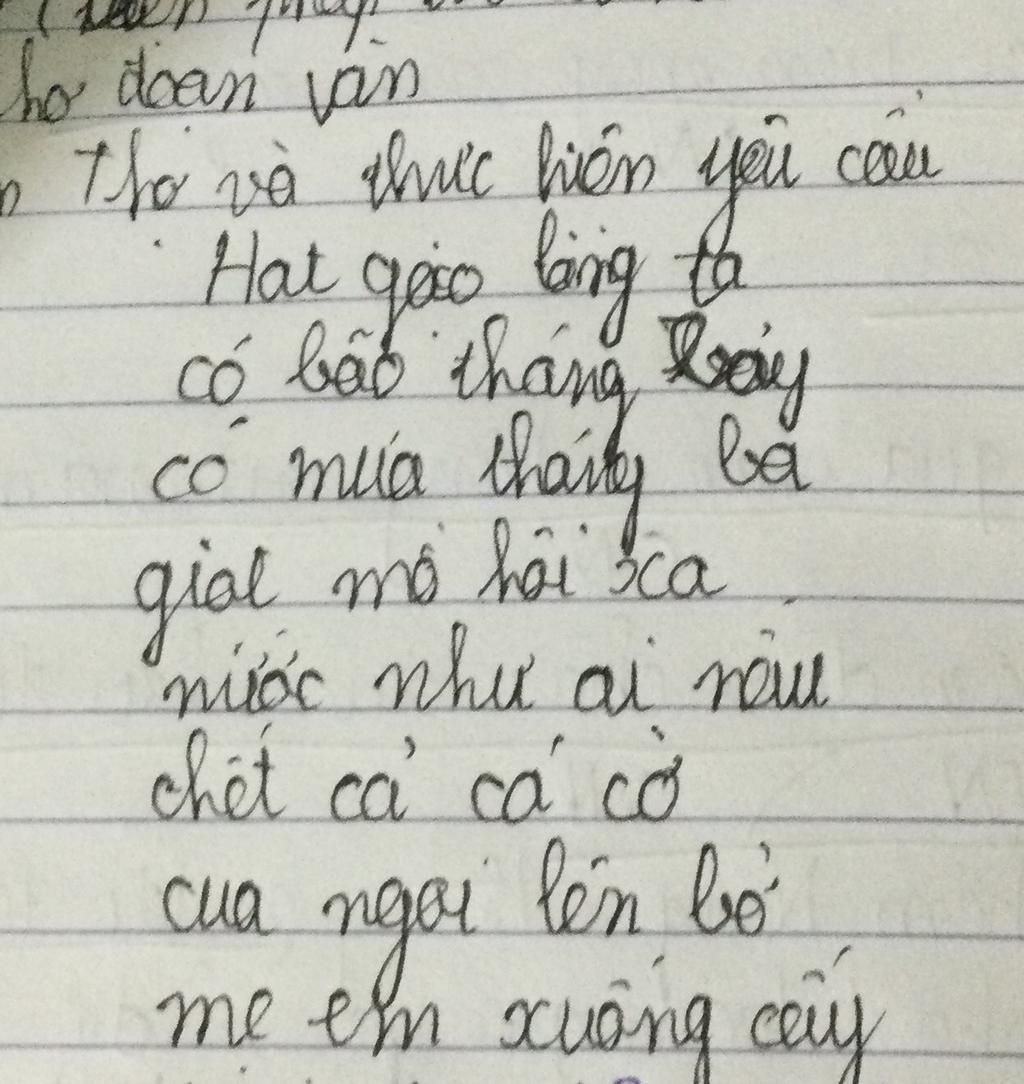 ho đoan văn
Thơ và thưc hiên yêu cầu
Hat gạo làng ta
có bão tháng bảy
có mưa tháng ba
giot mồ hôi xa
nước như ai nâu
chêt cả cá cờ
cua ngoi lên bờ
me em xuống cấy